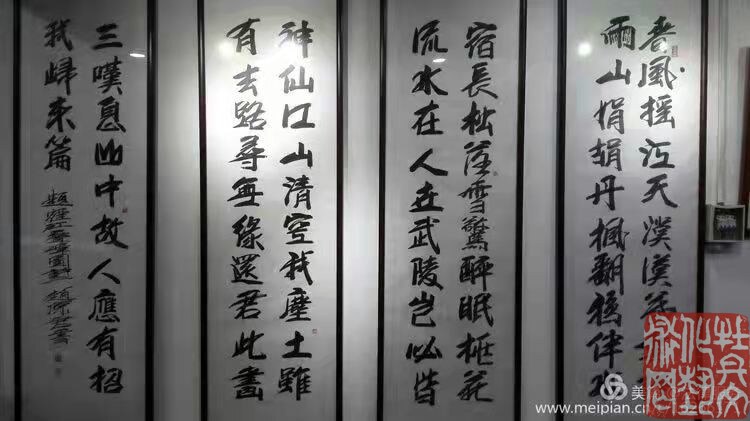 春風摇江天漠漠
雨山娟娟丹楓翻鴉伴水
宿長松落雪驚醉眠桃花
流水在人世武陵豈必皆
神仙江山清空我塵土雖
有去路尋無緣還君此畫
三嘆息山中故人應有招
我歸來篇
美
www.meipian.cn